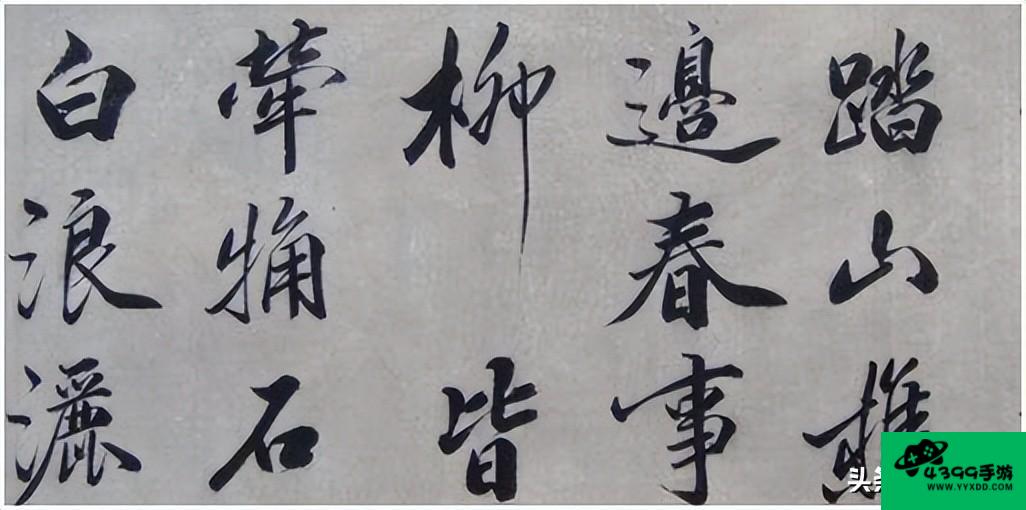 踏山
邊春事
柳皆
犖石
白浪灑
头
4399手游
WWW.YYXDD.COM